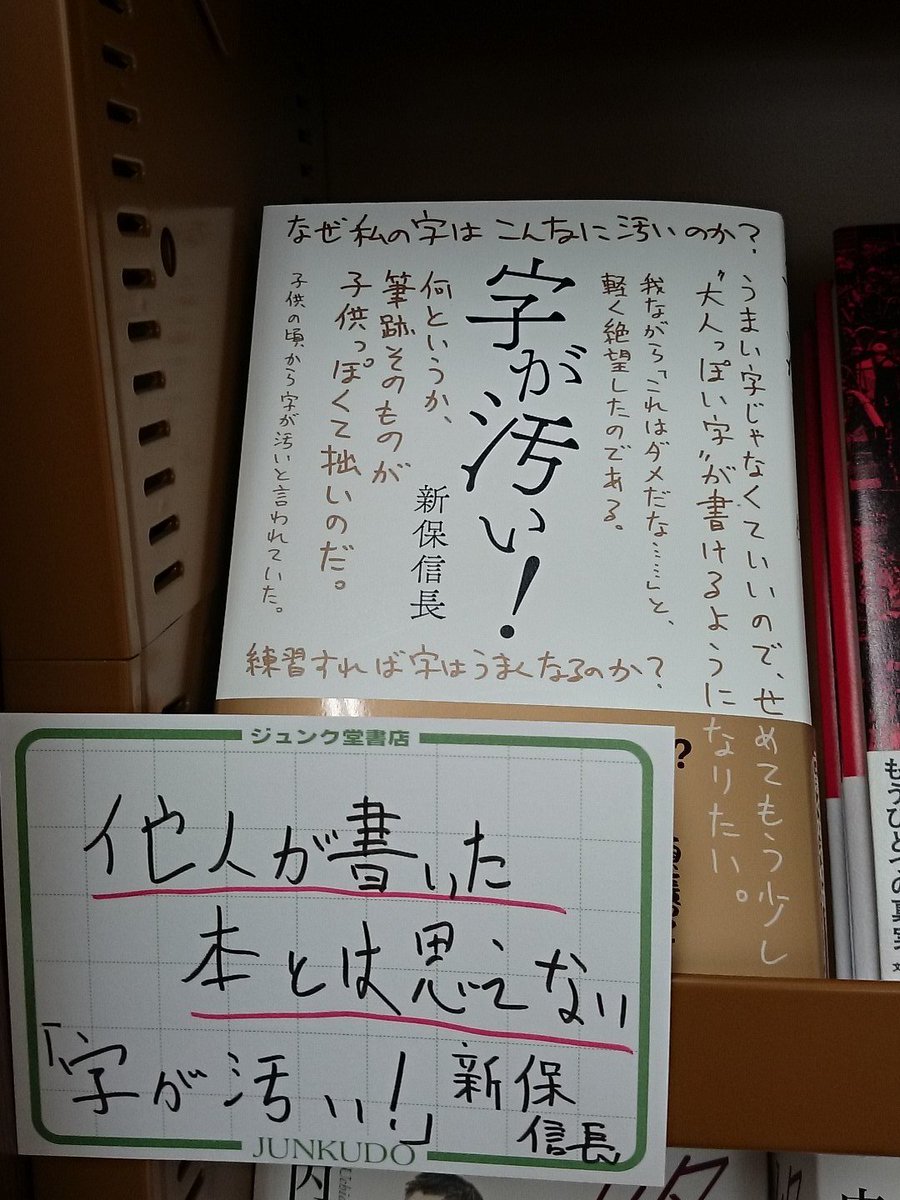 なぜ私の字はこんなに汚いのか?
うまい字じゃなくていいので、せめてもう少し
"大人っぽい字"が書けるようになりたい。
我ながら「これはダメだな……」と、
軽く絶望したのである。
字が汚い!
新保信長
何というか、
筆跡そのものが
子供っぽくて拙いのだ。
子供の頃から字が汚いと言われていた。
練習すれば字はうまくなるのか?
?
もうひとつの真実
ジュンク堂書店
他人が書いた
本とは思えない
「字が汚い!」新保
信長
JUNKUDO
内